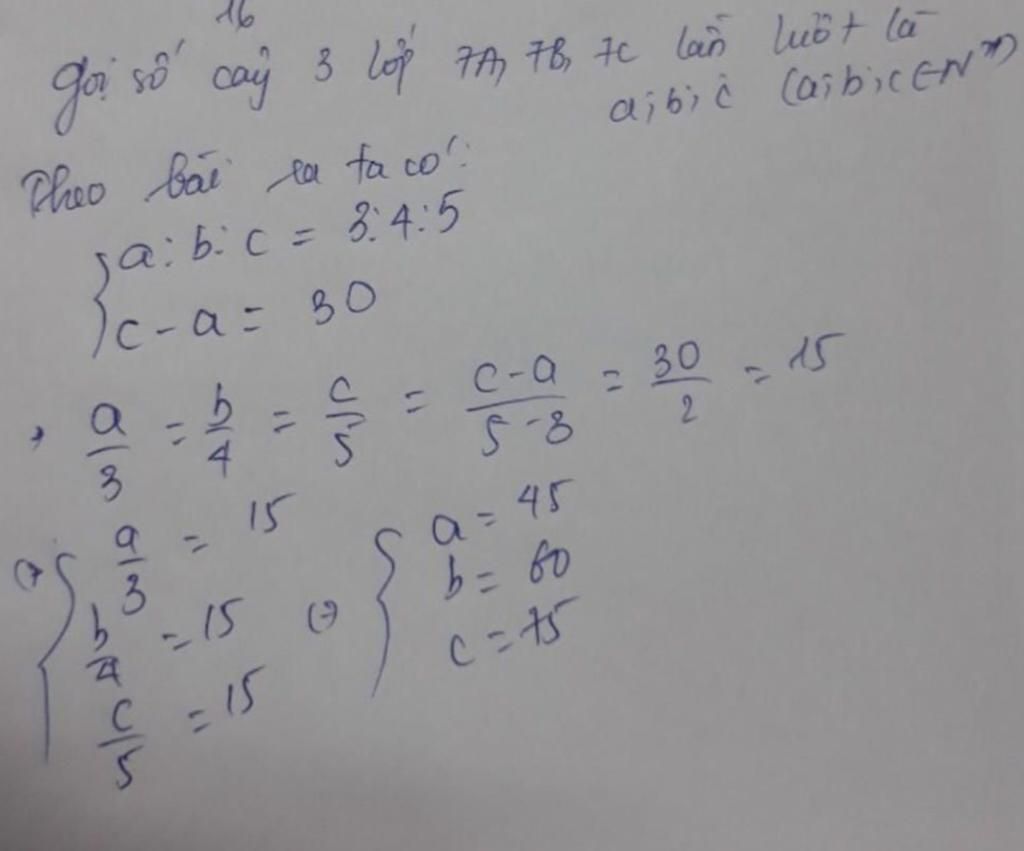 16
Gọi số cây 3 lớp 7A, 7B, 7C lần lượt là
a; b; c (a; b; c ∈ N*)
Theo bài ra ta có:
{ a : b : c = 3 : 4 : 5
c - a = 30
, a/3 = b/4 = c/5 = (c - a)/(5 - 3) = 30/2 = 15
{ a/3 = 15
b/4 = 15
c/5 = 15
{ a = 45
b = 60
c = 75